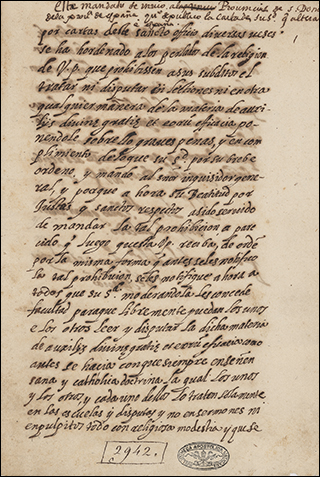 Este mandato de nuio, Provincia de S. Domi
por cartas deste sancto officio diuersas ueces
se ha hordenado a los perlados de la religion
de V.p. que prohibiesen a sus subditos el
tratar ni disputar en lectiones ni en otra
qualquier manera de la materia de auxi
lijs diuinę gratię et eorū efficacia po
niendole sobre ello graues penas, y en cum
plimiento de lo que su S.d por su breue
ordeno, y mando al señor inquisidor gene
ral, y porque a hora su Beatitud por
justos y sanctos respectos a sido seruido
de mandar la tal prohibicion
luego questa V.p. reciba, de orden
por la misma forma q antes se les notifico
la tal prohibicion, se les notifique ahora a
todos que su S.d moderandola les concede
facultad para que libremente puedan los unos
e los otros leer y disputar la dicha materia
de auxilijs diuinę gratię et eorū efficacia como
antes se hacia con que siempre enseñen
sana y catholica doctrina la qual los unos
y los otros, y cada uno dellos lo traten solamente
en las escuelas y disputas y no en sermones ni
en pulpitos todo con religiosa modestia y que se
2942.